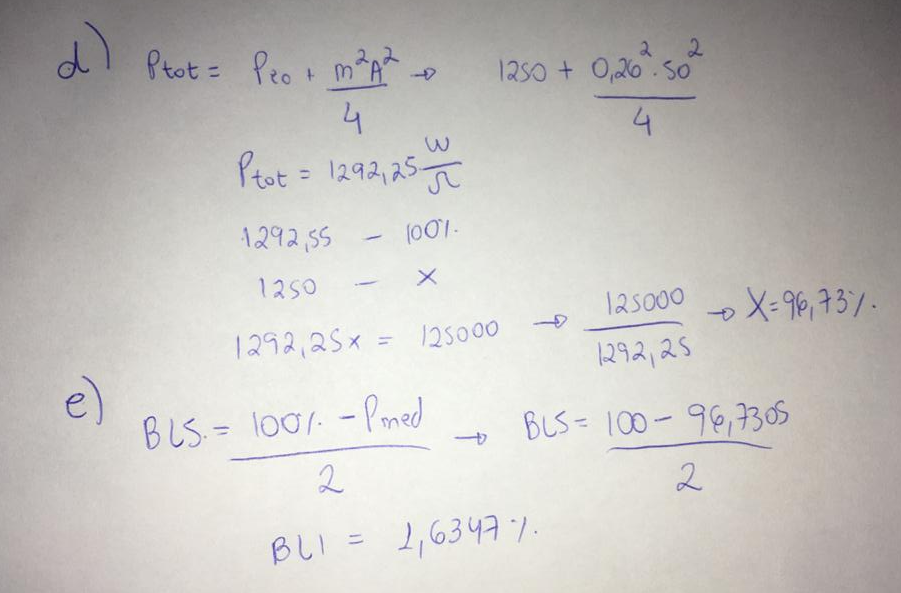 d) Ptot = Peo + m²A²/4 → 1250 + 0,26².50²/4
Ptot = 1292,25 W/Ω
1292,55 - 100%.
1250 - X
1292,25x = 125000 → 125000/1292,25 → X=96,73%.
e) BLS.= 100% - Pmed/2 → BLS= 100 - 96,7305/2
BLI = 1,6347%.